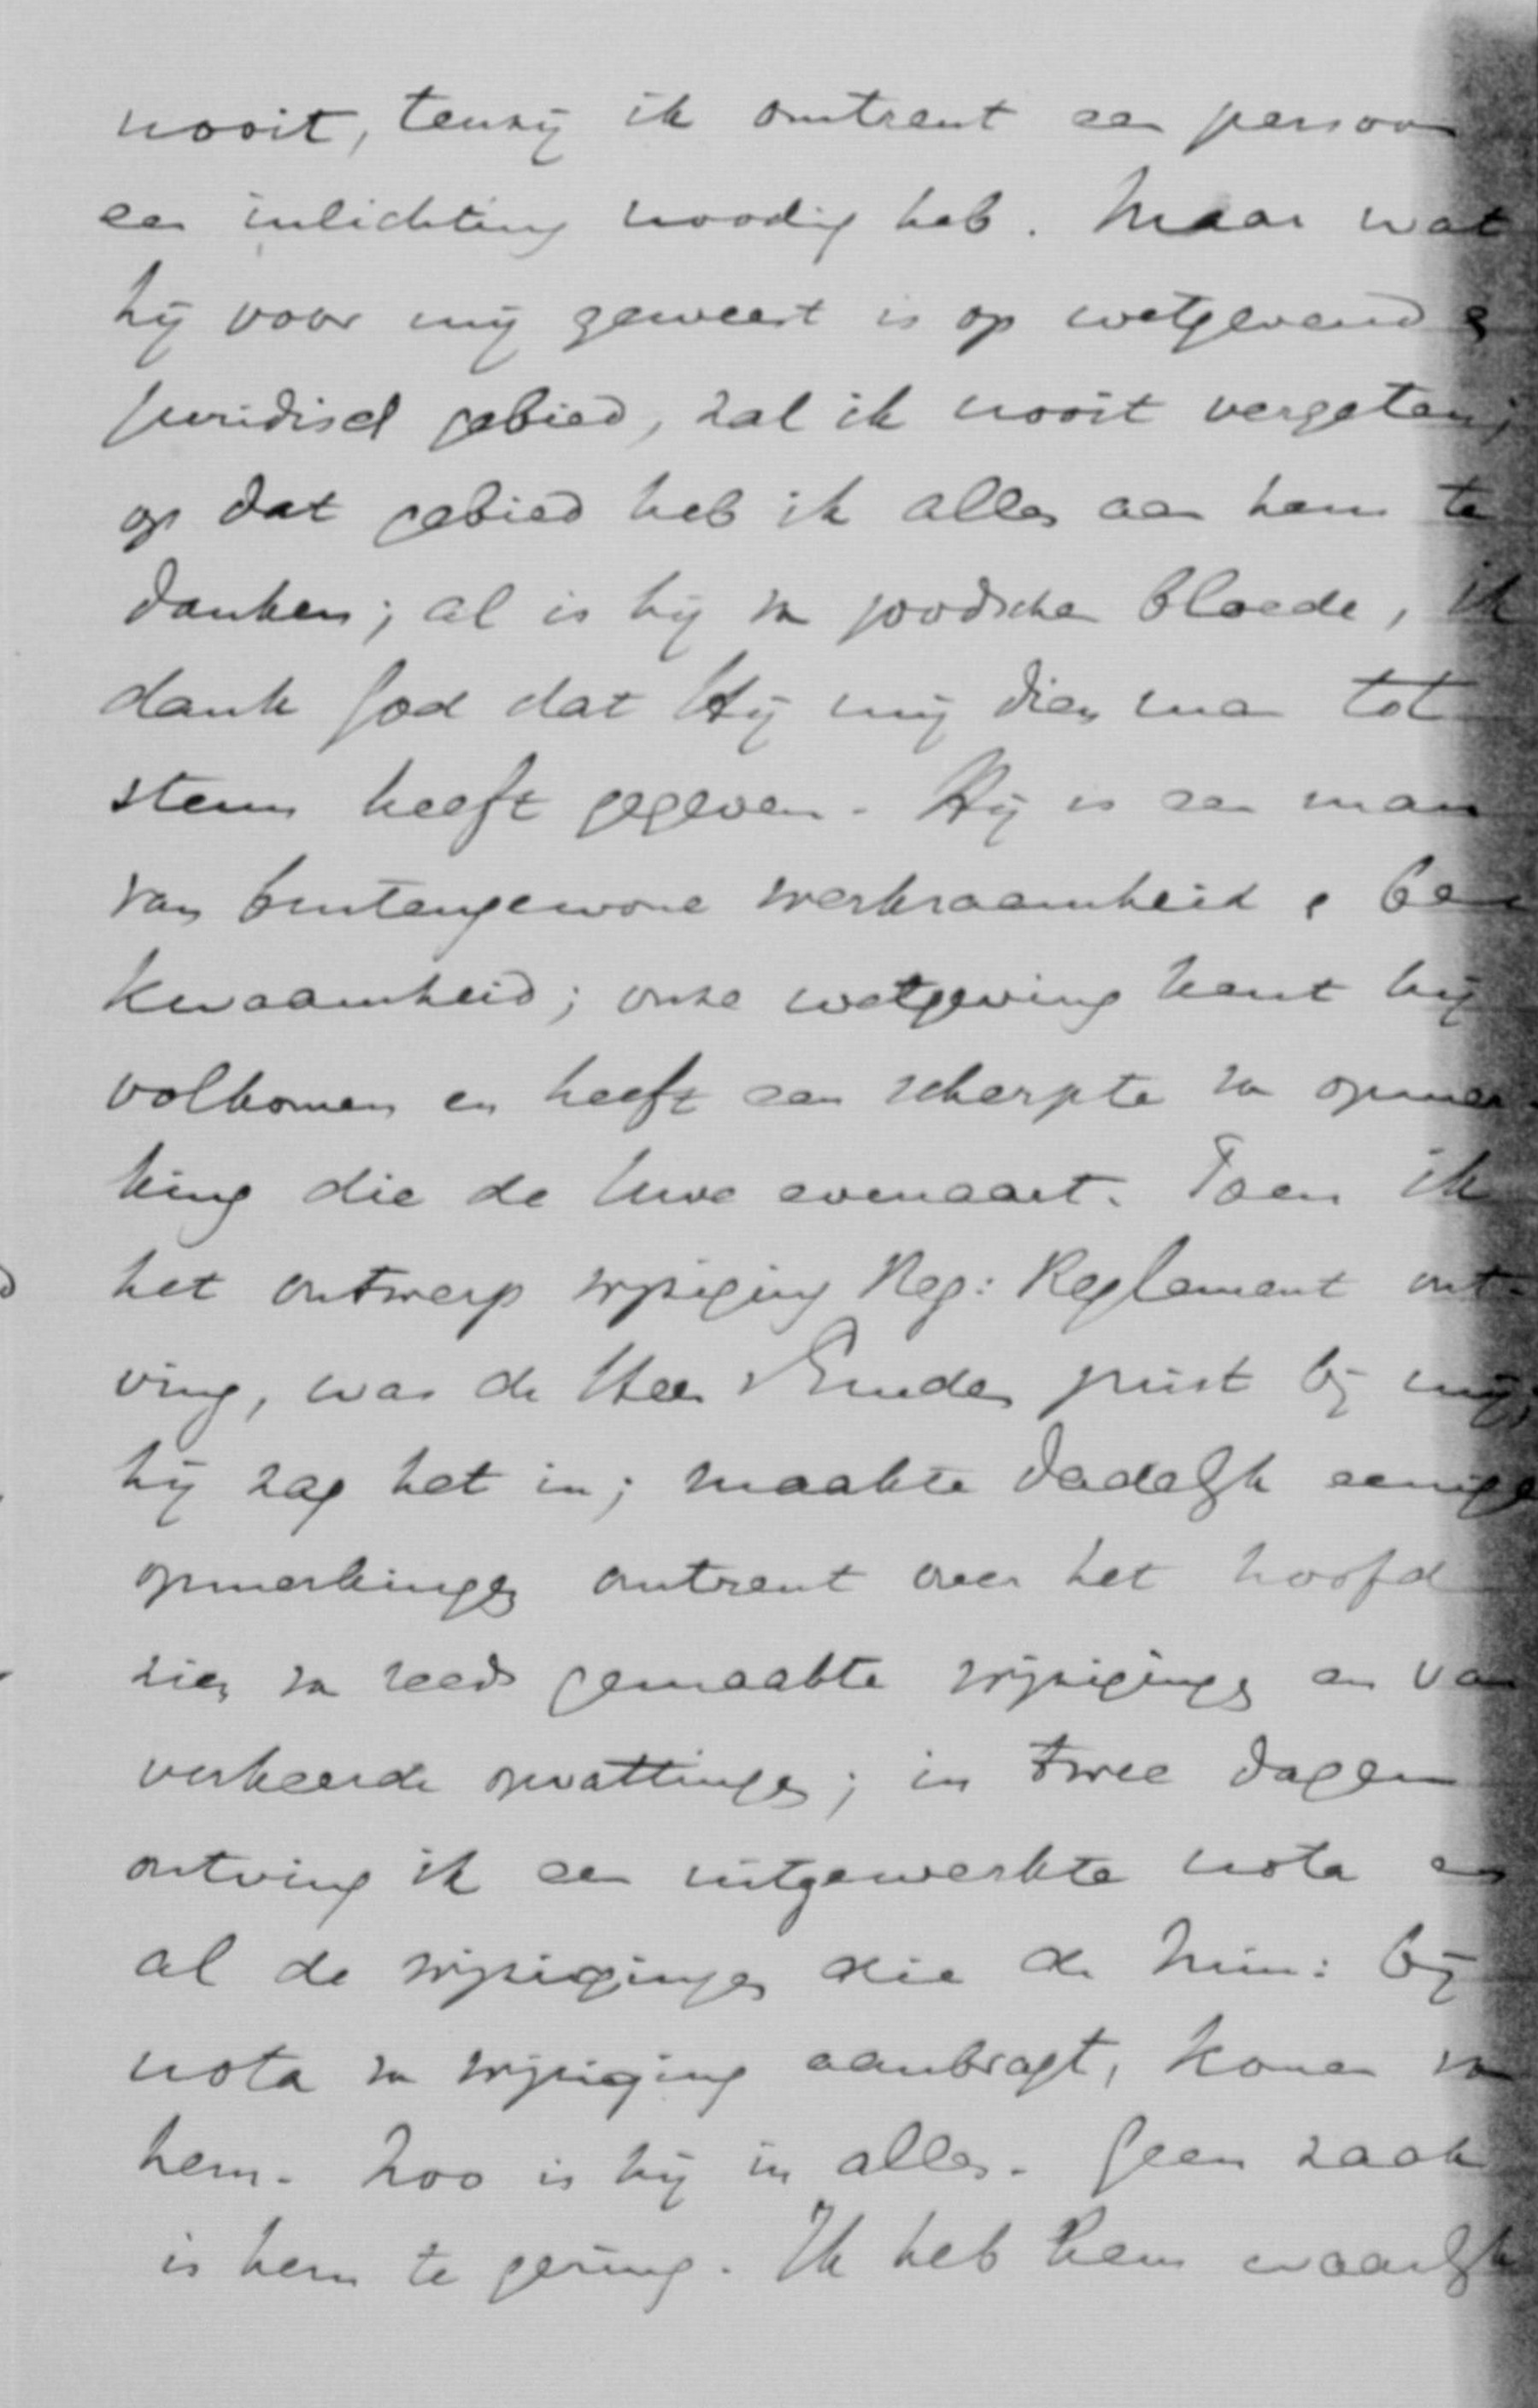 nooit, tenzij ik omtrent een persoon
een inlichting noodig heb. Maar wat
hij voor mij geweest is op wetgevend &
juridisch gebied, zal ik nooit vergeten;
op dat gebied heb ik alles aan hem te
danken; al is hij van joodschen bloede, ik
dank God dat Hij mij dien man tot
steun heeft gegeven. Hij is een man
van buitengewone werkzaamheid & be-
kwaamheid; onze wetgeving kent hij
volkomen en heeft een scherpte van opmer-
king die de Uwe evenaart. Toen ik
het ontwerp wijziging Reg: Reglement ont-
ving, was de Heer juist bij mij;
hij zag het in; maakte dadelijk eenige
opmerkingen omtrent over het hoofd
zien van reeds gemaakte wijzigingen en van
verkeerde opvattingen; in twee dagen
ontving ik een uitgewerkte nota en
al de wijzigingen die de Min: bij
nota van wijziging aanbragt, komen van
hem. Zoo is hij in alles. Geen zaak
is hem te gering. Ik heb hem waarlijk